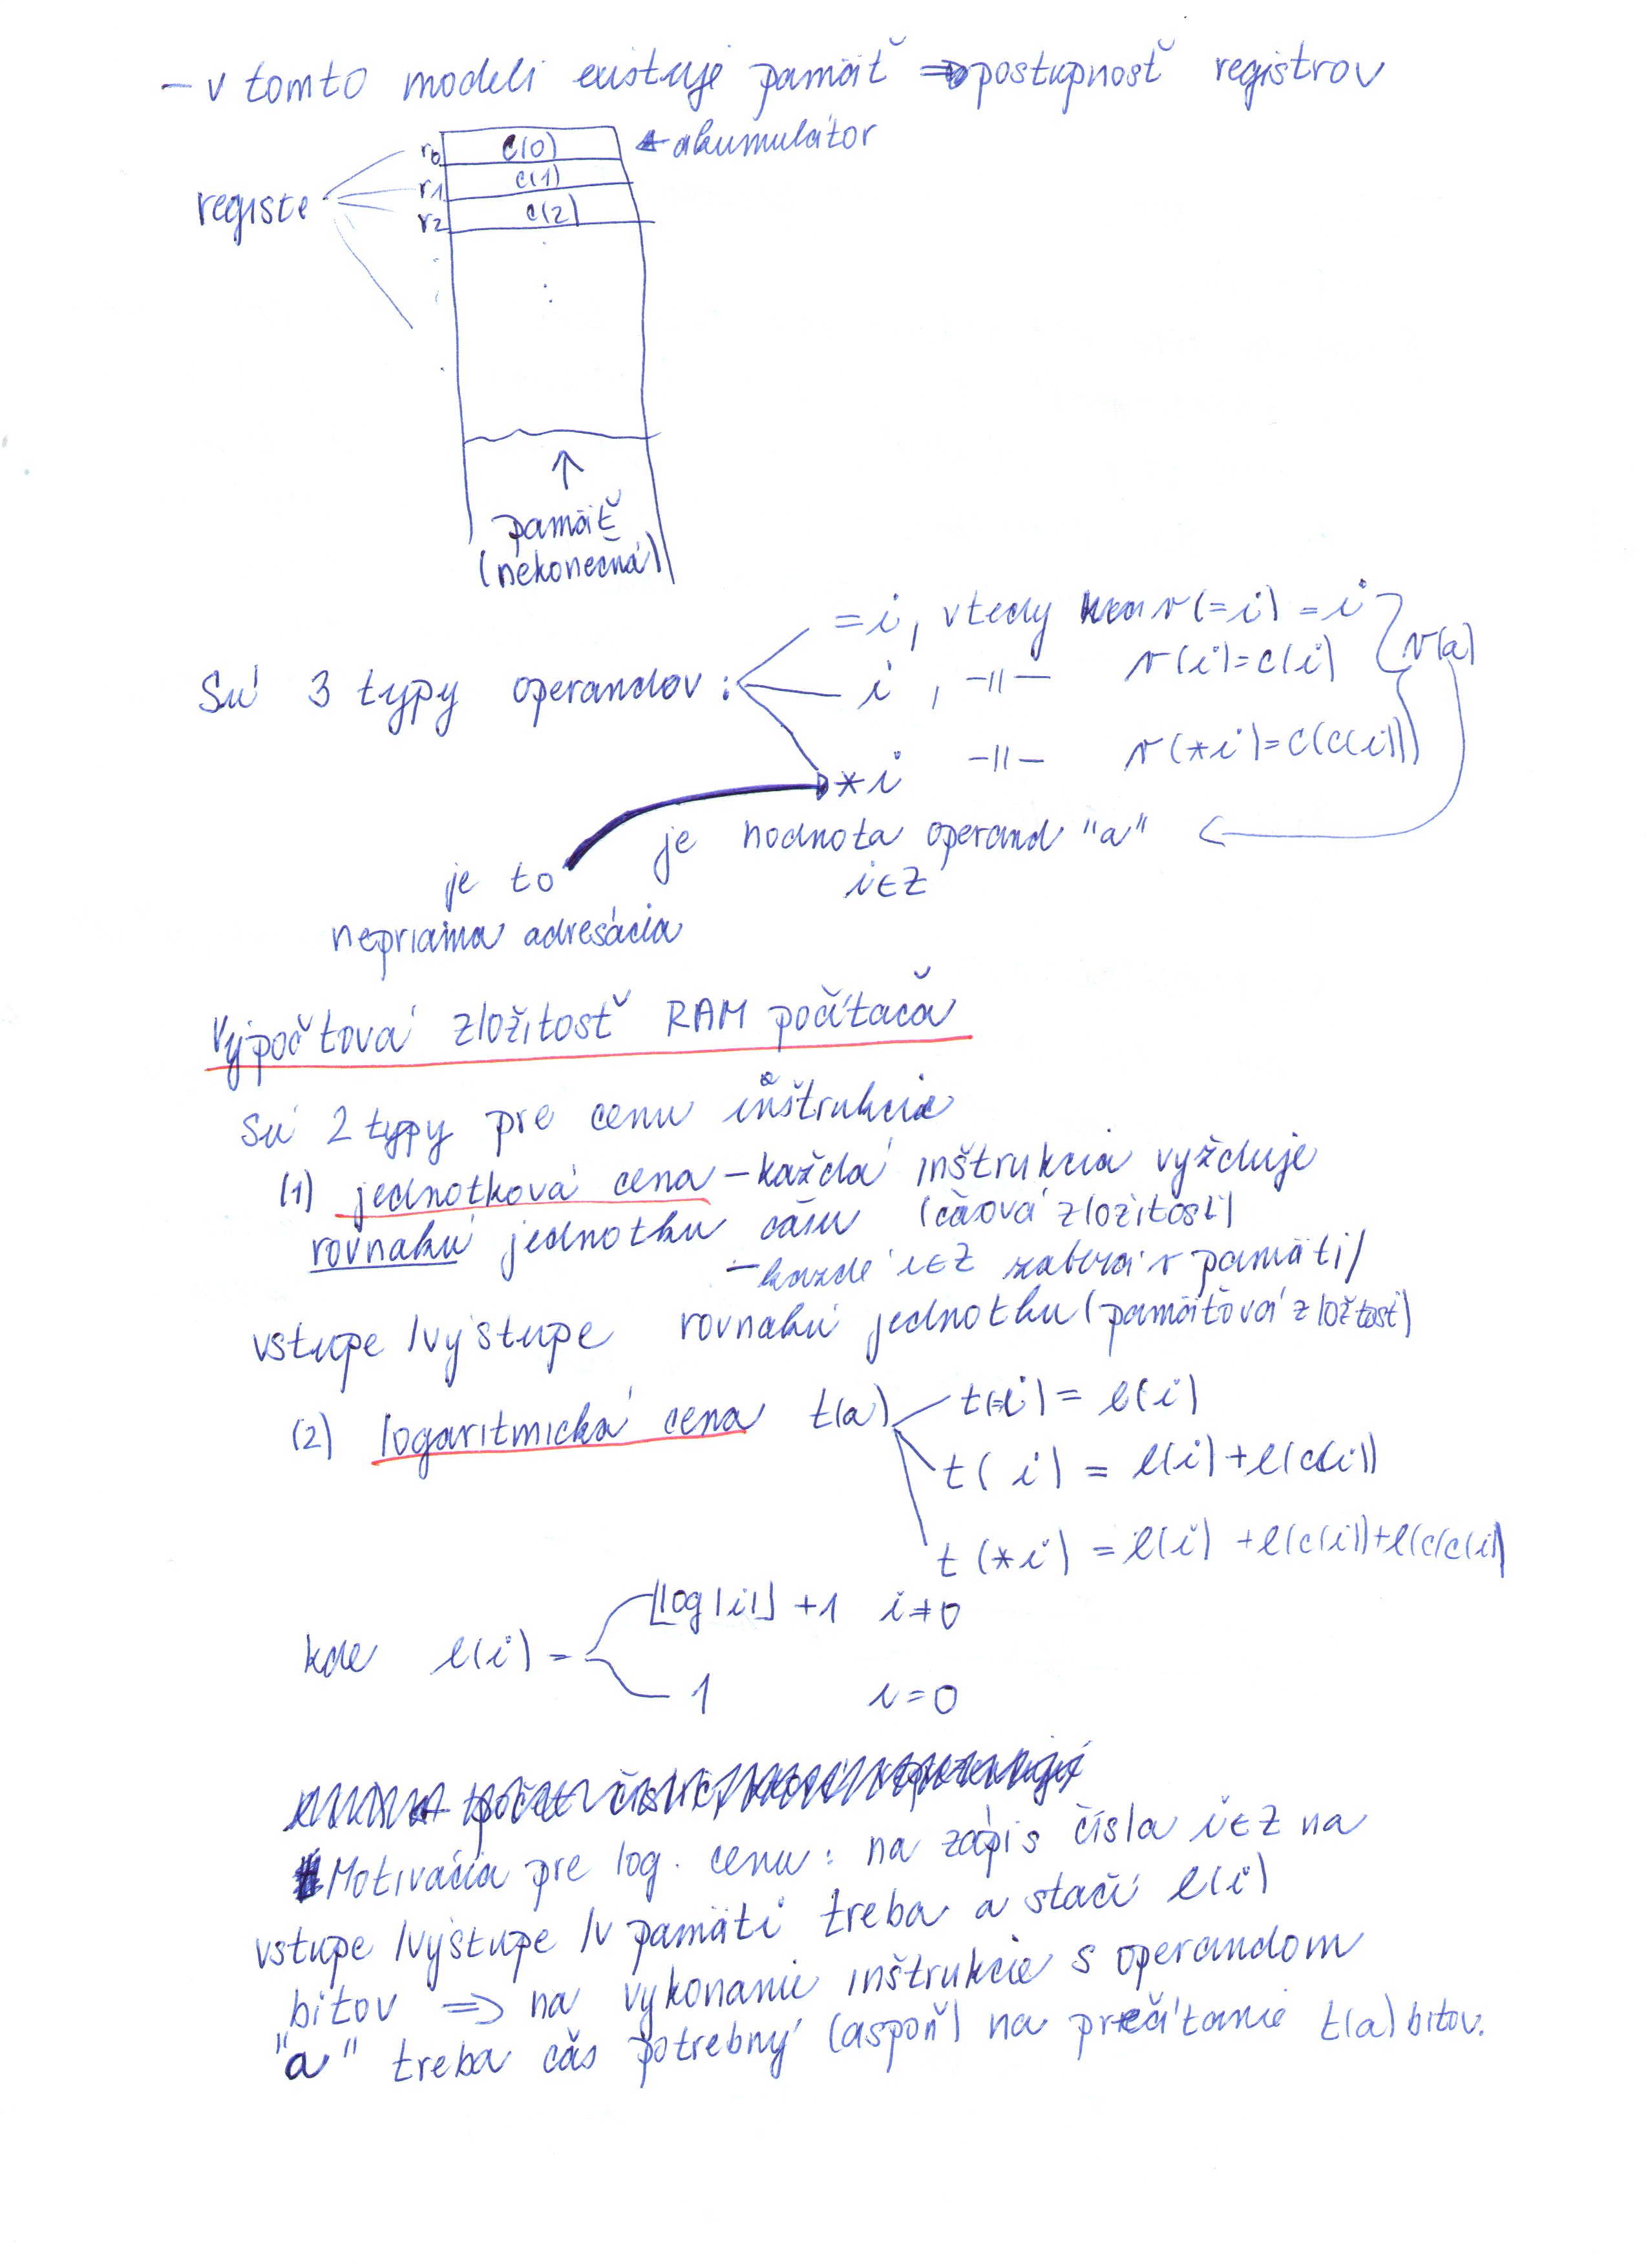 - v tomto modeli existuje pamäť => postupnosť registrov
r0 c(0) ← akumulátor
r1 c(1)
registe
r2 c(2)
↑
pamäť
(nekonečná)
= i, vtedy v(=i) = i
Sú 3 typy operandov: i, -||- v(i)=c(i) v(a)
*i -||- v(*i)=c(c(i))
je hodnota operand "a"
je to i∈Z
nepriama adresácia
Výpočtová zložitosť RAM počítača
Sú 2 typy pre cenu inštrukcie
(1) jednotková cena - každá inštrukcia vyžduje
rovnakú jednotku času (čaová zložitosť)
- každé i∈Z zaberá v pamäti/
vstupe /výstupe rovnakú jednotku (pamäťová zložtosť)
(2) logaritmická cena t(a) t(=i) = l(i)
t( i) = l(i)+l(c(i))
t (*i) = l(i) +l(c(i))+l(c(c(i))
⌊log|i|⌋ +1 i≠0
kde l(i) =
1 i=0
počet číslic,
Motivácia pre log. cenu: na zápis čísla i∈Z na
vstupe /výstupe /v pamäti treba a stačí l(i)
bitov => na vykonanie inštrukcie s operandom
"a" treba čas potrebný (aspoň) na prečítanie t(a) bitov.